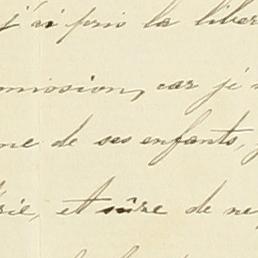 j'ai pris la liber
mission, car je
me de ses enfants,
rie, et sûre de ne